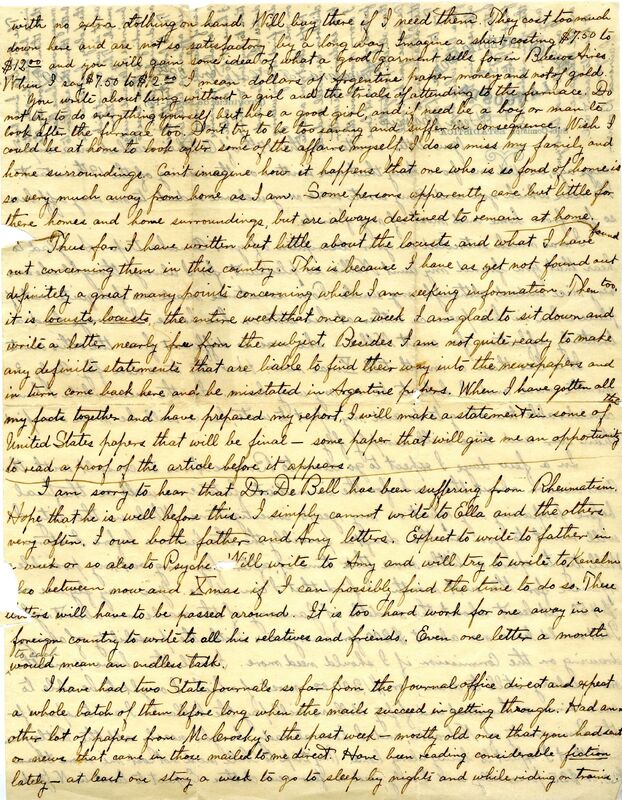 with no extra clothing on hand. Will buy there if I need them. They cost too much
down here and are not so satisfactory by a long way. Imagine a shirt costing $7.50 to
$12.00 and you will gain some idea of what a good garment sells for in Buenos Aires
When I say $7.50 to $12.00 I mean dollars of Argentine paper money and not of gold.
You write about being without a girl and the trials of attending to the furnace. Do
not try to do everything yourself but hire a good girl, and if need be a boy or man to
look after the furnace too. Dont try to be too saving and suffer in consequence. Wish I
could be at home to look after some of the affairs myself. I do so miss my family and
home surroundings. Cant imagine how it happens that one who is so fond of home is
so very much away from home as I am. Some persons apparently care but little for
there homes and home surroundings, but are always destined to remain at home.
Thus far I have written but little about the locusts and what I have found
out concerning them in this country. This is because I have as yet not found out
definitely a great many points concerning which I am seeking information. Then too,
it is locusts, locusts, the entire week that once a week I am glad to sit down and
write a letter nearly free from the subject. Becides I am not quite ready to make
any definite statements that are liable to find their way into the newspapers and
in turn come back here and be misstated in Argentine papers. When I have gotten all
my facts together and have prepared my report, I will make a statement in some of the
United States papers that will be final – some paper that will give me an opportunity
to read a proof of the article before it appears.
I am sorry to hear that Dr. De Bell has been suffering from Rheumatism.
Hope that he is well before this. I simply cannot write to Ella and the others
very often. I owe both father and Amy letters. Expect to write to father in
a week or so also to Psyche. Will write to Amy and will try to write to Kenelm
also between now and Xmas if I can posibly find the time to do so. These
letters will have to be passed around. It is too hard work for one away in a
foreign country to write to all his relatives and friends. Even one letter a month
to each would mean an endless task.
I have had two State Journals so far from the Journal office direct and expect
a whole batch of them before long when the mails succeed in getting through. Had an-
other lot of papers from McCrosky's the past week – mostly old ones that you had sent
or news that came in those mailed to me direct. Have been reading considerable fiction
lately – at least one story a week to go to sleep by nights and while riding on trains.